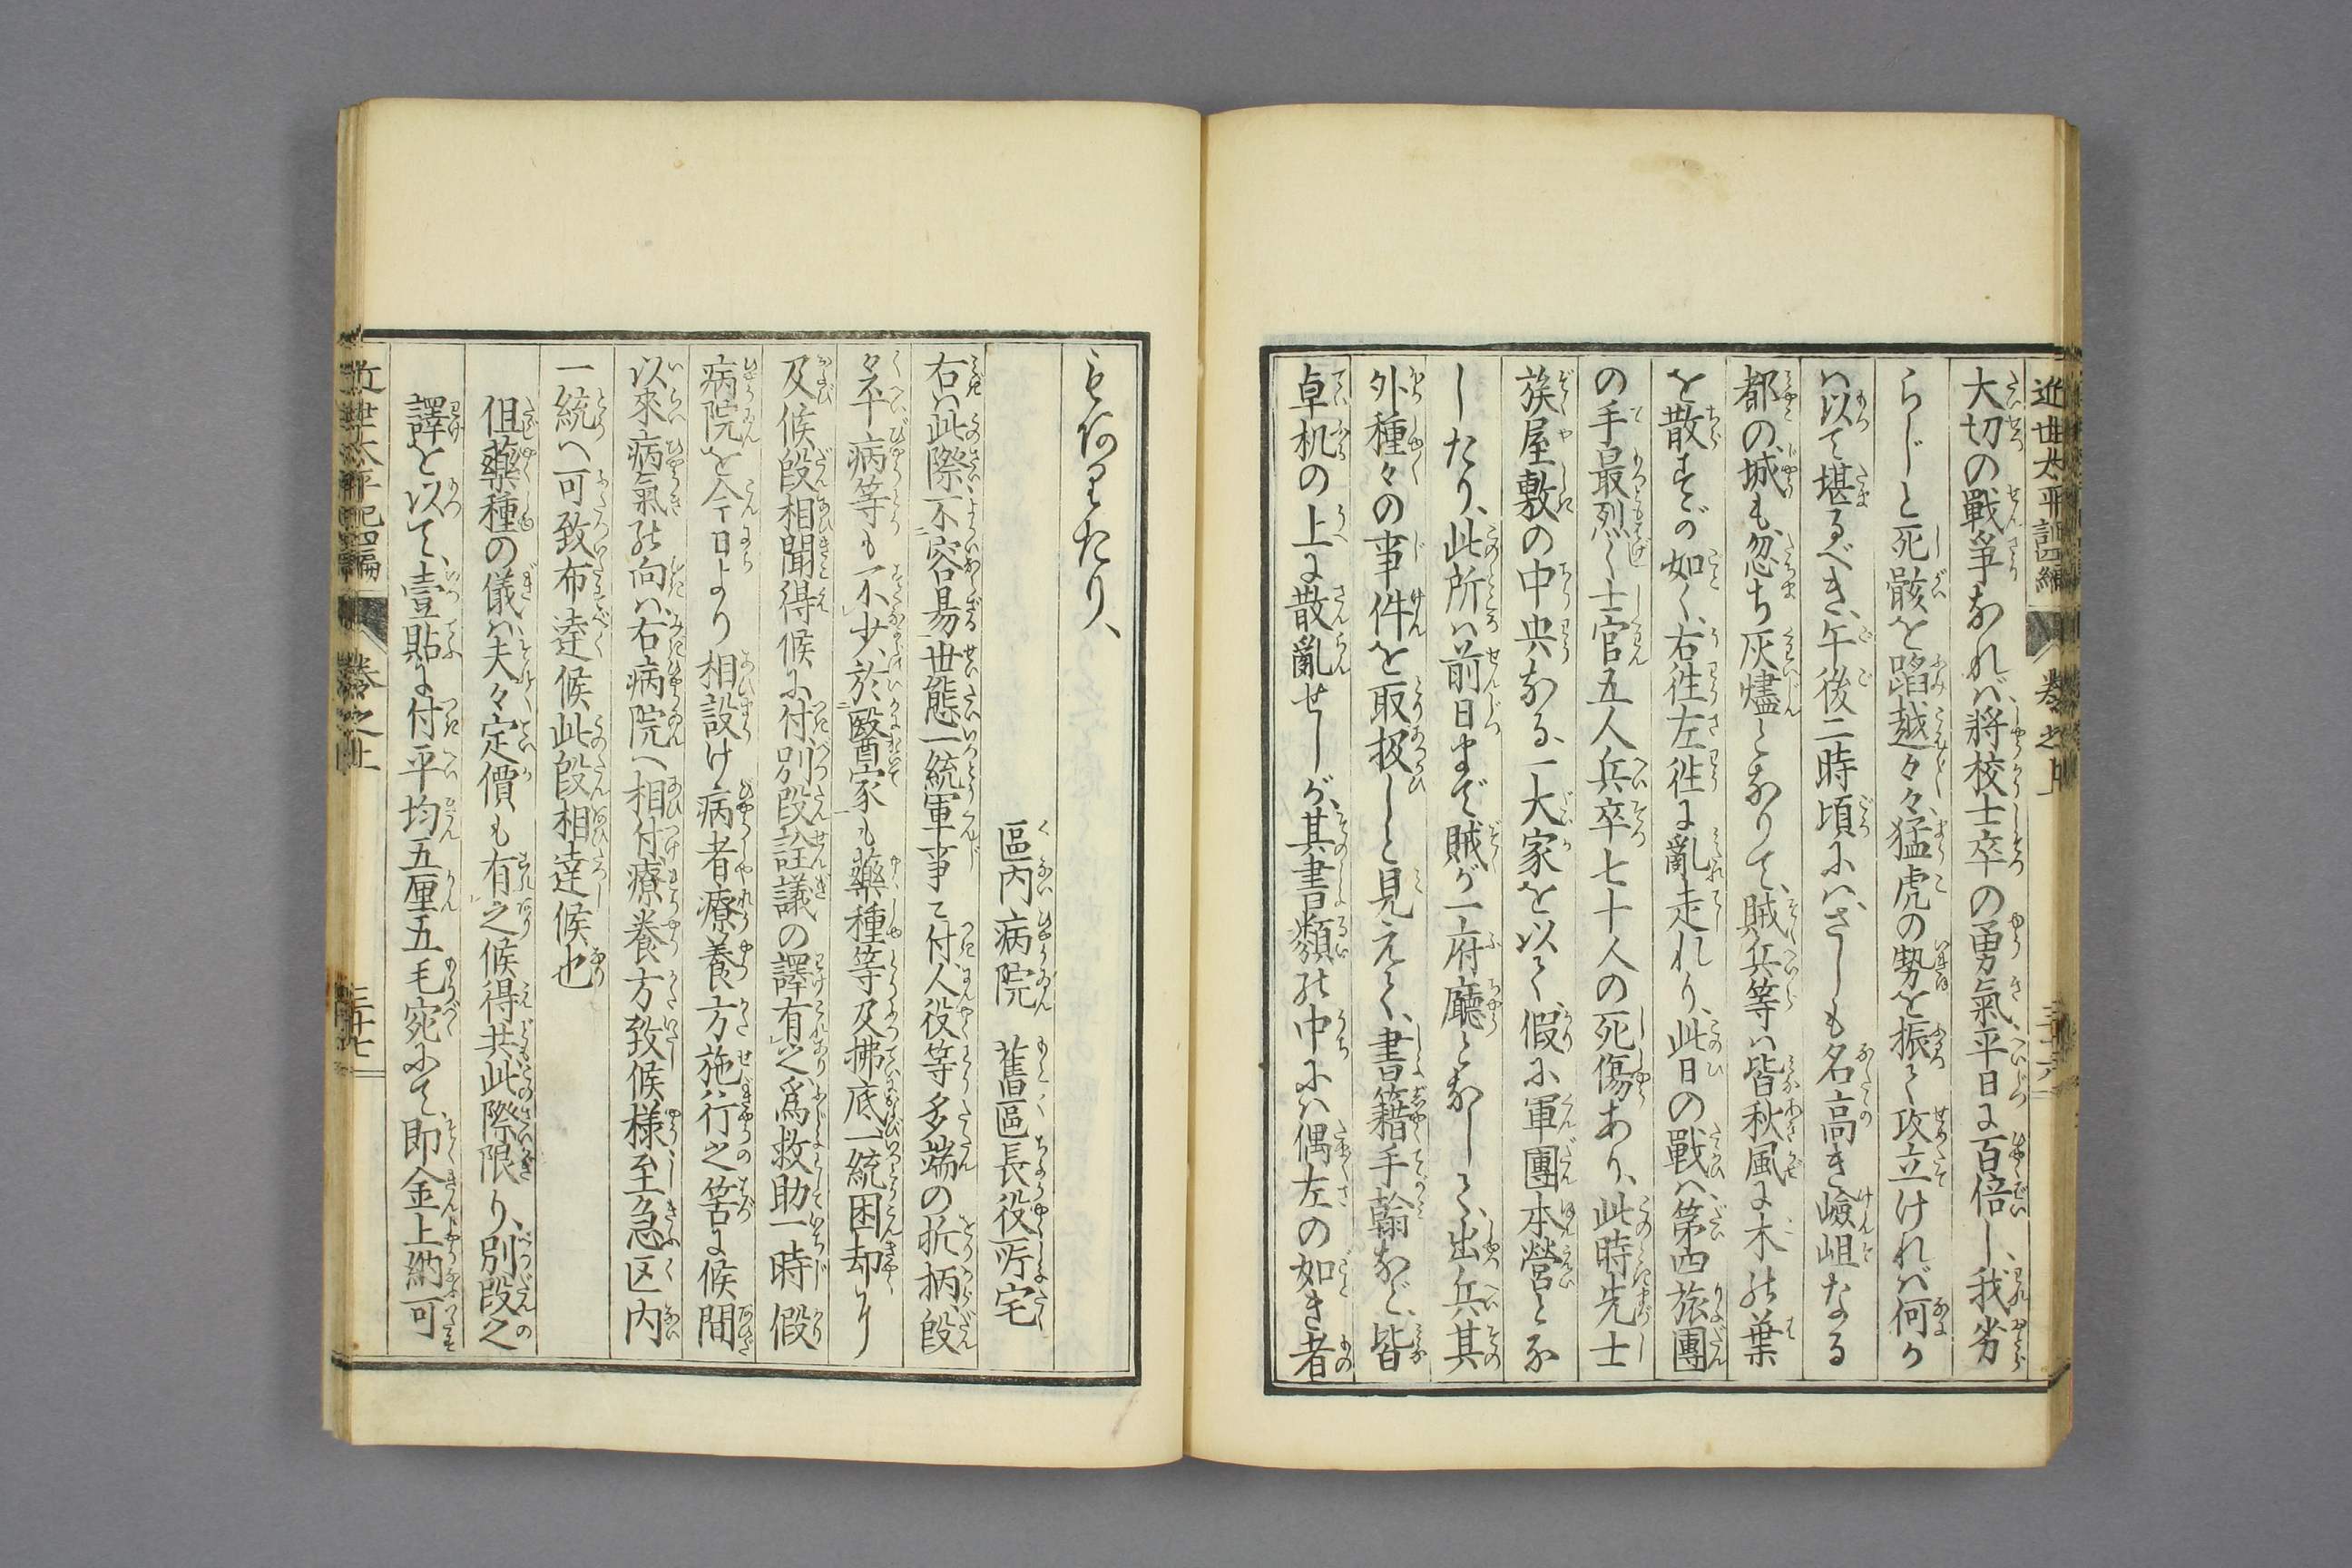 近世太平記四編 巻之上 三十六
大切の戰争なれバ、將校士卒の勇氣、平日に百倍し、我劣
らじと死骸を蹈越々々、猛虎の勢を振て攻立けれバ何か
ハ以て堪るべき、午後二時頃にハ、さしも名高き嶮岨なる
都の城も、忽ち灰燼となりて、賊兵等ハ皆秋風に木の葉
を散すが如く、右徃左徃に亂走れり、此日の戰ハ、第四旅團
の手最烈く、士官五人兵卒七十人の死傷あり、此時先士
族屋敷の中央なる、一大家を以て、假に軍團本營とな
したり、此所ハ前日まで賊が一府廳となして、出兵其
外種々の事件を取扱しと見えて、書籍手翰など、皆
卓机の上に散亂せしが、其書類の中にハ偶左の如き者
もありたり、
區内病院 舊區長役所宅
右ハ此際不容易世態一統軍事ニ付、人役等多端の折柄、段
々不平病等も不少、於醫家も藥種等及拂底、一統困却ノ
及候段相聞得候に付、別段詮議の譯有之爲救助一時假
病院を今日より相設け、病者療養方施ハ行之筈に候間
以來病氣の向ハ、右病院へ相付療養方致候様至急区内
一統へ可致布達候此段相達候也
但藥種の儀ハ夫々定價も有之候得共此際限り、別段之
譯を以て、壹貼に付平均五厘五毛宛にて、即金上納可
近世太平記四編 巻之上 三十七